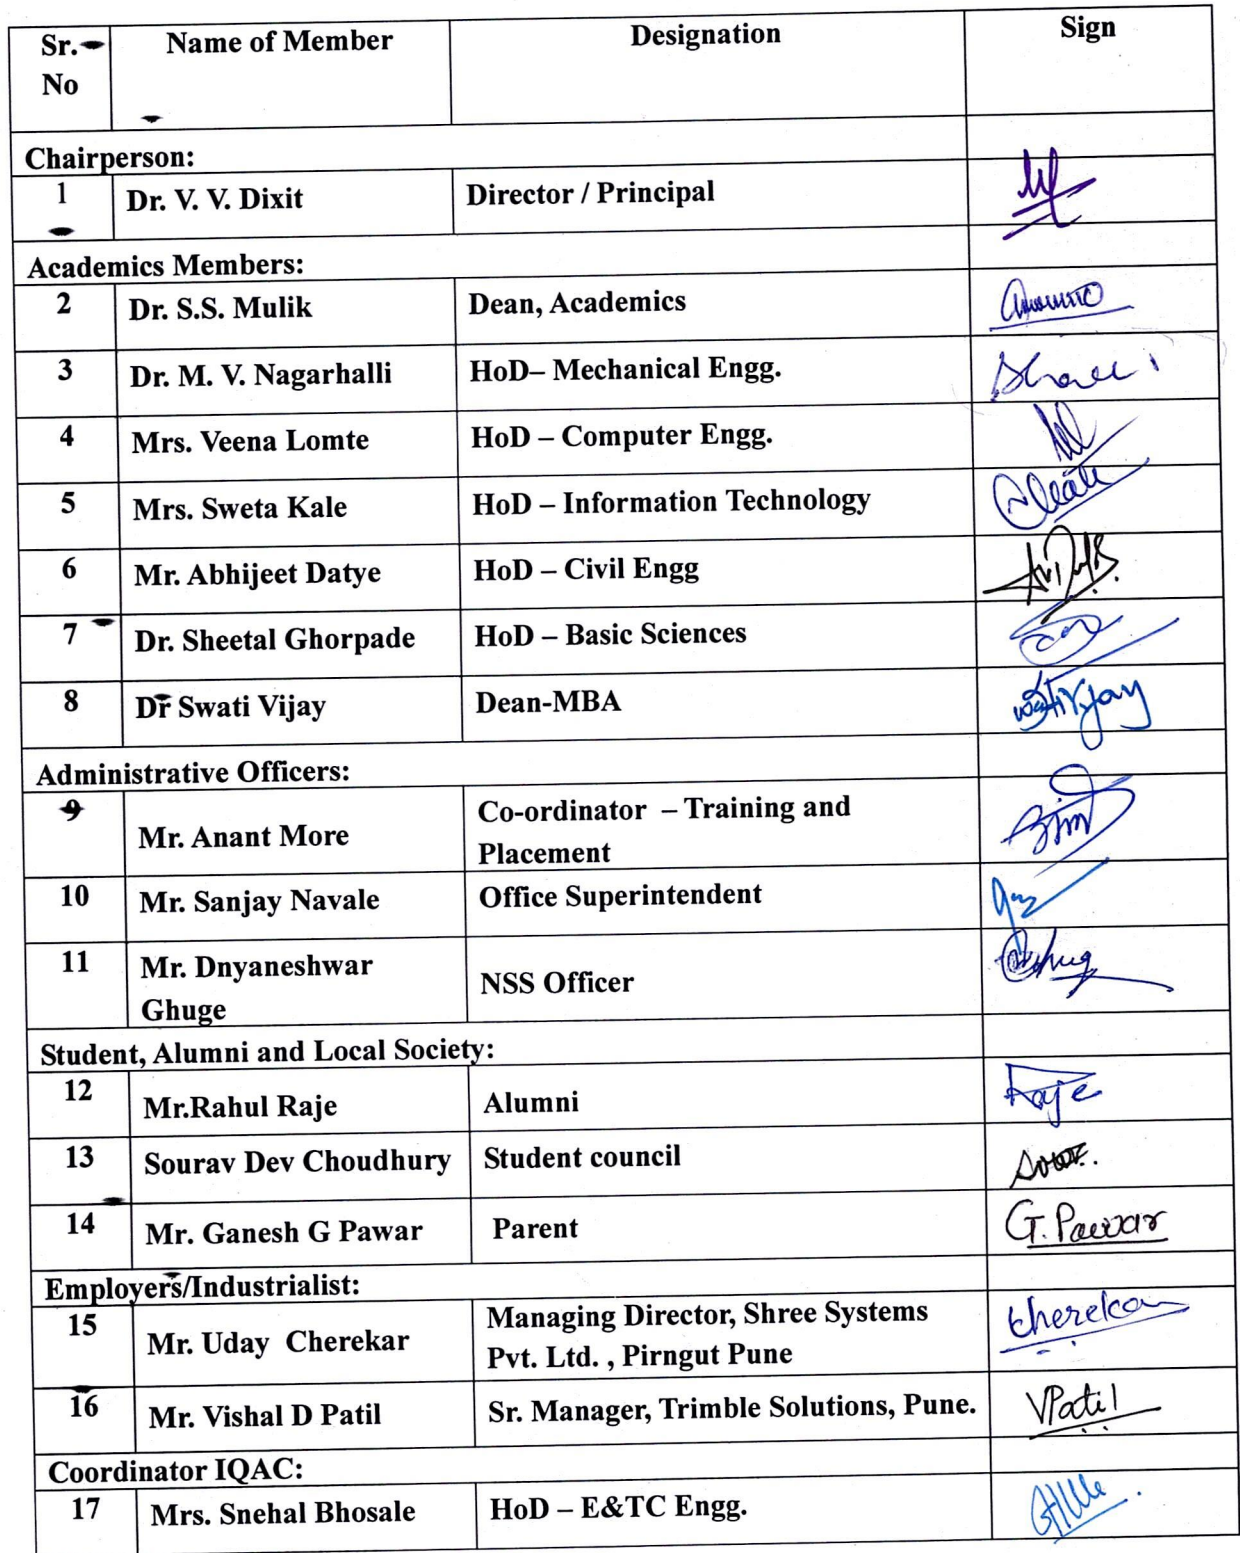 Sr. No Name of Member Designation Sign
Chairperson:
1 Dr. V. V. Dixit Director / Principal
Academics Members:
2 Dr. S.S. Mulik Dean, Academics
3 Dr. M. V. Nagarhalli HoD– Mechanical Engg.
4 Mrs. Veena Lomte HoD – Computer Engg.
5 Mrs. Sweta Kale HoD – Information Technology
6 Mr. Abhijeet Datye HoD – Civil Engg
7 Dr. Sheetal Ghorpade HoD – Basic Sciences
8 Dr Swati Vijay Dean-MBA
Administrative Officers:
9 Mr. Anant More Co-ordinator – Training and
Placement
10 Mr. Sanjay Navale Office Superintendent
11 Mr. Dnyaneshwar
Ghuge NSS Officer
Student, Alumni and Local Society:
12 Mr.Rahul Raje Alumni Raje
13 Sourav Dev Choudhury Student council
14 Mr. Ganesh G Pawar Parent G. Pawar
Employers/Industrialist:
15 Mr. Uday Cherekar Managing Director, Shree Systems
Pvt. Ltd. , Pirngut Pune
16 Mr. Vishal D Patil Sr. Manager, Trimble Solutions, Pune. VPatil
Coordinator IQAC:
17 Mrs. Snehal Bhosale HoD – E&TC Engg.